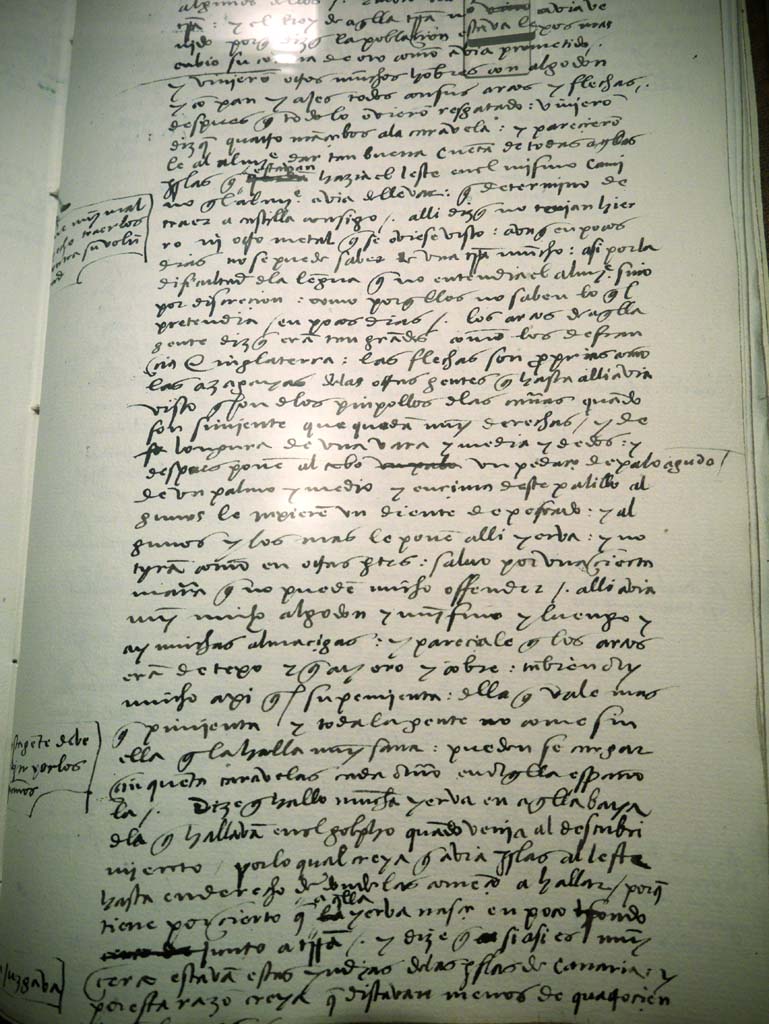 trra: y el Rey de aqlla trra
ydo porq dizq la poblaçion estava lexos mas
enbio su corona de oro como avia prometido
y vinierō otros muchos hobres con algodon
y co pan y ajes todos con sus arcos y flechas /.
despues q todo lo oviero resgatado: vinierō
dizq quatro mācebos ala caravela: y pareciero
le al almie dar tan buena cuenta de todas aqllas
yslas q estavan hazia el leste enel mismo cami
no ql almie. avia de llevar: q determino de
traer a castilla consigo /. alli dizq no tenian hier
ro ni otro metal q se oviese visto: aunq en pocos
dias no se puede saber de una trra mucho: asi por la
dificultad dla lengua q no entendia el almie. sino
por discreçion: como porq ellos no saben lo q el
pretendia / en pocos dias /. los arcos d aqlla
gente dizq erā tan grādes como los de fran
çia E inglaterra: las flechas son proprias como
las azagayas delas otras gentes q hasta alli avia
visto q son dlos pinpollos dlas cañas quādo
son simiente que quedā muy derechas / y de
longura de una vara y media y de dos: y
despues ponē al cabo un pedaço de palo agudo /
de un palmo y medio y ençima deste palillo al
gunos le inxierē un diente de pescado: y al
gunos y los mas le ponē alli yerva: y no
tyrā como en otras ptes: salvo por una çierta
maña q no puedē mucho offender /. alli avia
muy mucho algodon y muy fino y luengo y
ay muchas almaçigas: y pareciale q los arcos
erā de texo E q ay oro y cobre: tābien ay
mucho axi q es su pemienta: dlla q vale mas
q pimienta y toda la gente no come sin
ella q la halla muy sana: pueden se cargar
çinquēta caravelas cada año en aqlla españo
la /. Dize q hallo mucha yerva en aqlla baya
dla q hallavā enel golpho quādo venia al descubri
miento / por lo qual creya q avia yslas al leste
hasta en derecho de donde las começo a hallar / porq
tiene por çierto q aqlla yerva nasçe en poco fondo
junto a trra /. y dize q si asi es muy
çerca estavā estas yndias delas yslas de Canaria: y
por esta razō creya q distavan menos de quatroçien
muy mal
hecho traerlos
contra su volū
tad